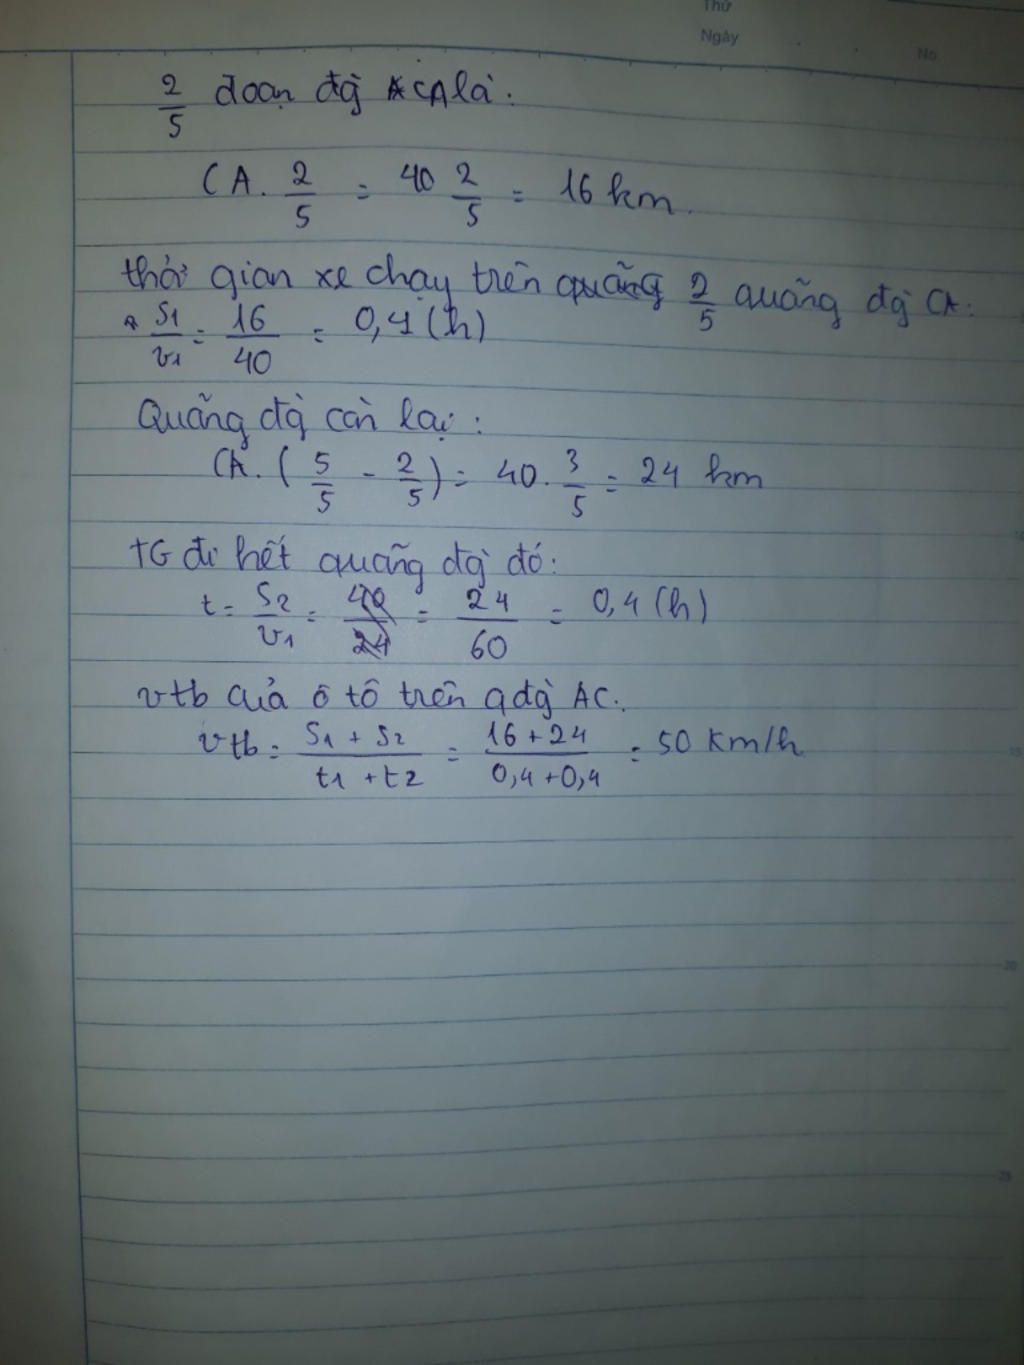 Thứ
Ngày
No
2/5 đoạn đg̀ CA là:
CA. 2/5 = 40 2/5 = 16 km.
thời gian xe chạy trên quãng 2/5 quãng đg̀ CA:
S1/v1 = 16/40 = 0,4 (h)
Quãng đg̀ còn lại:
CA. (5/5 - 2/5) = 40. 3/5 = 24 km
TG đi hết quãng đg̀ đó:
t = S2/v1 = 40/24 = 24/60 = 0,4 (h)
vtb của ô tô trên qđg̀ AC.
vtb = S1 + S2 / t1 + t2 = 16 + 24 / 0,4 + 0,4 = 50 Km/h